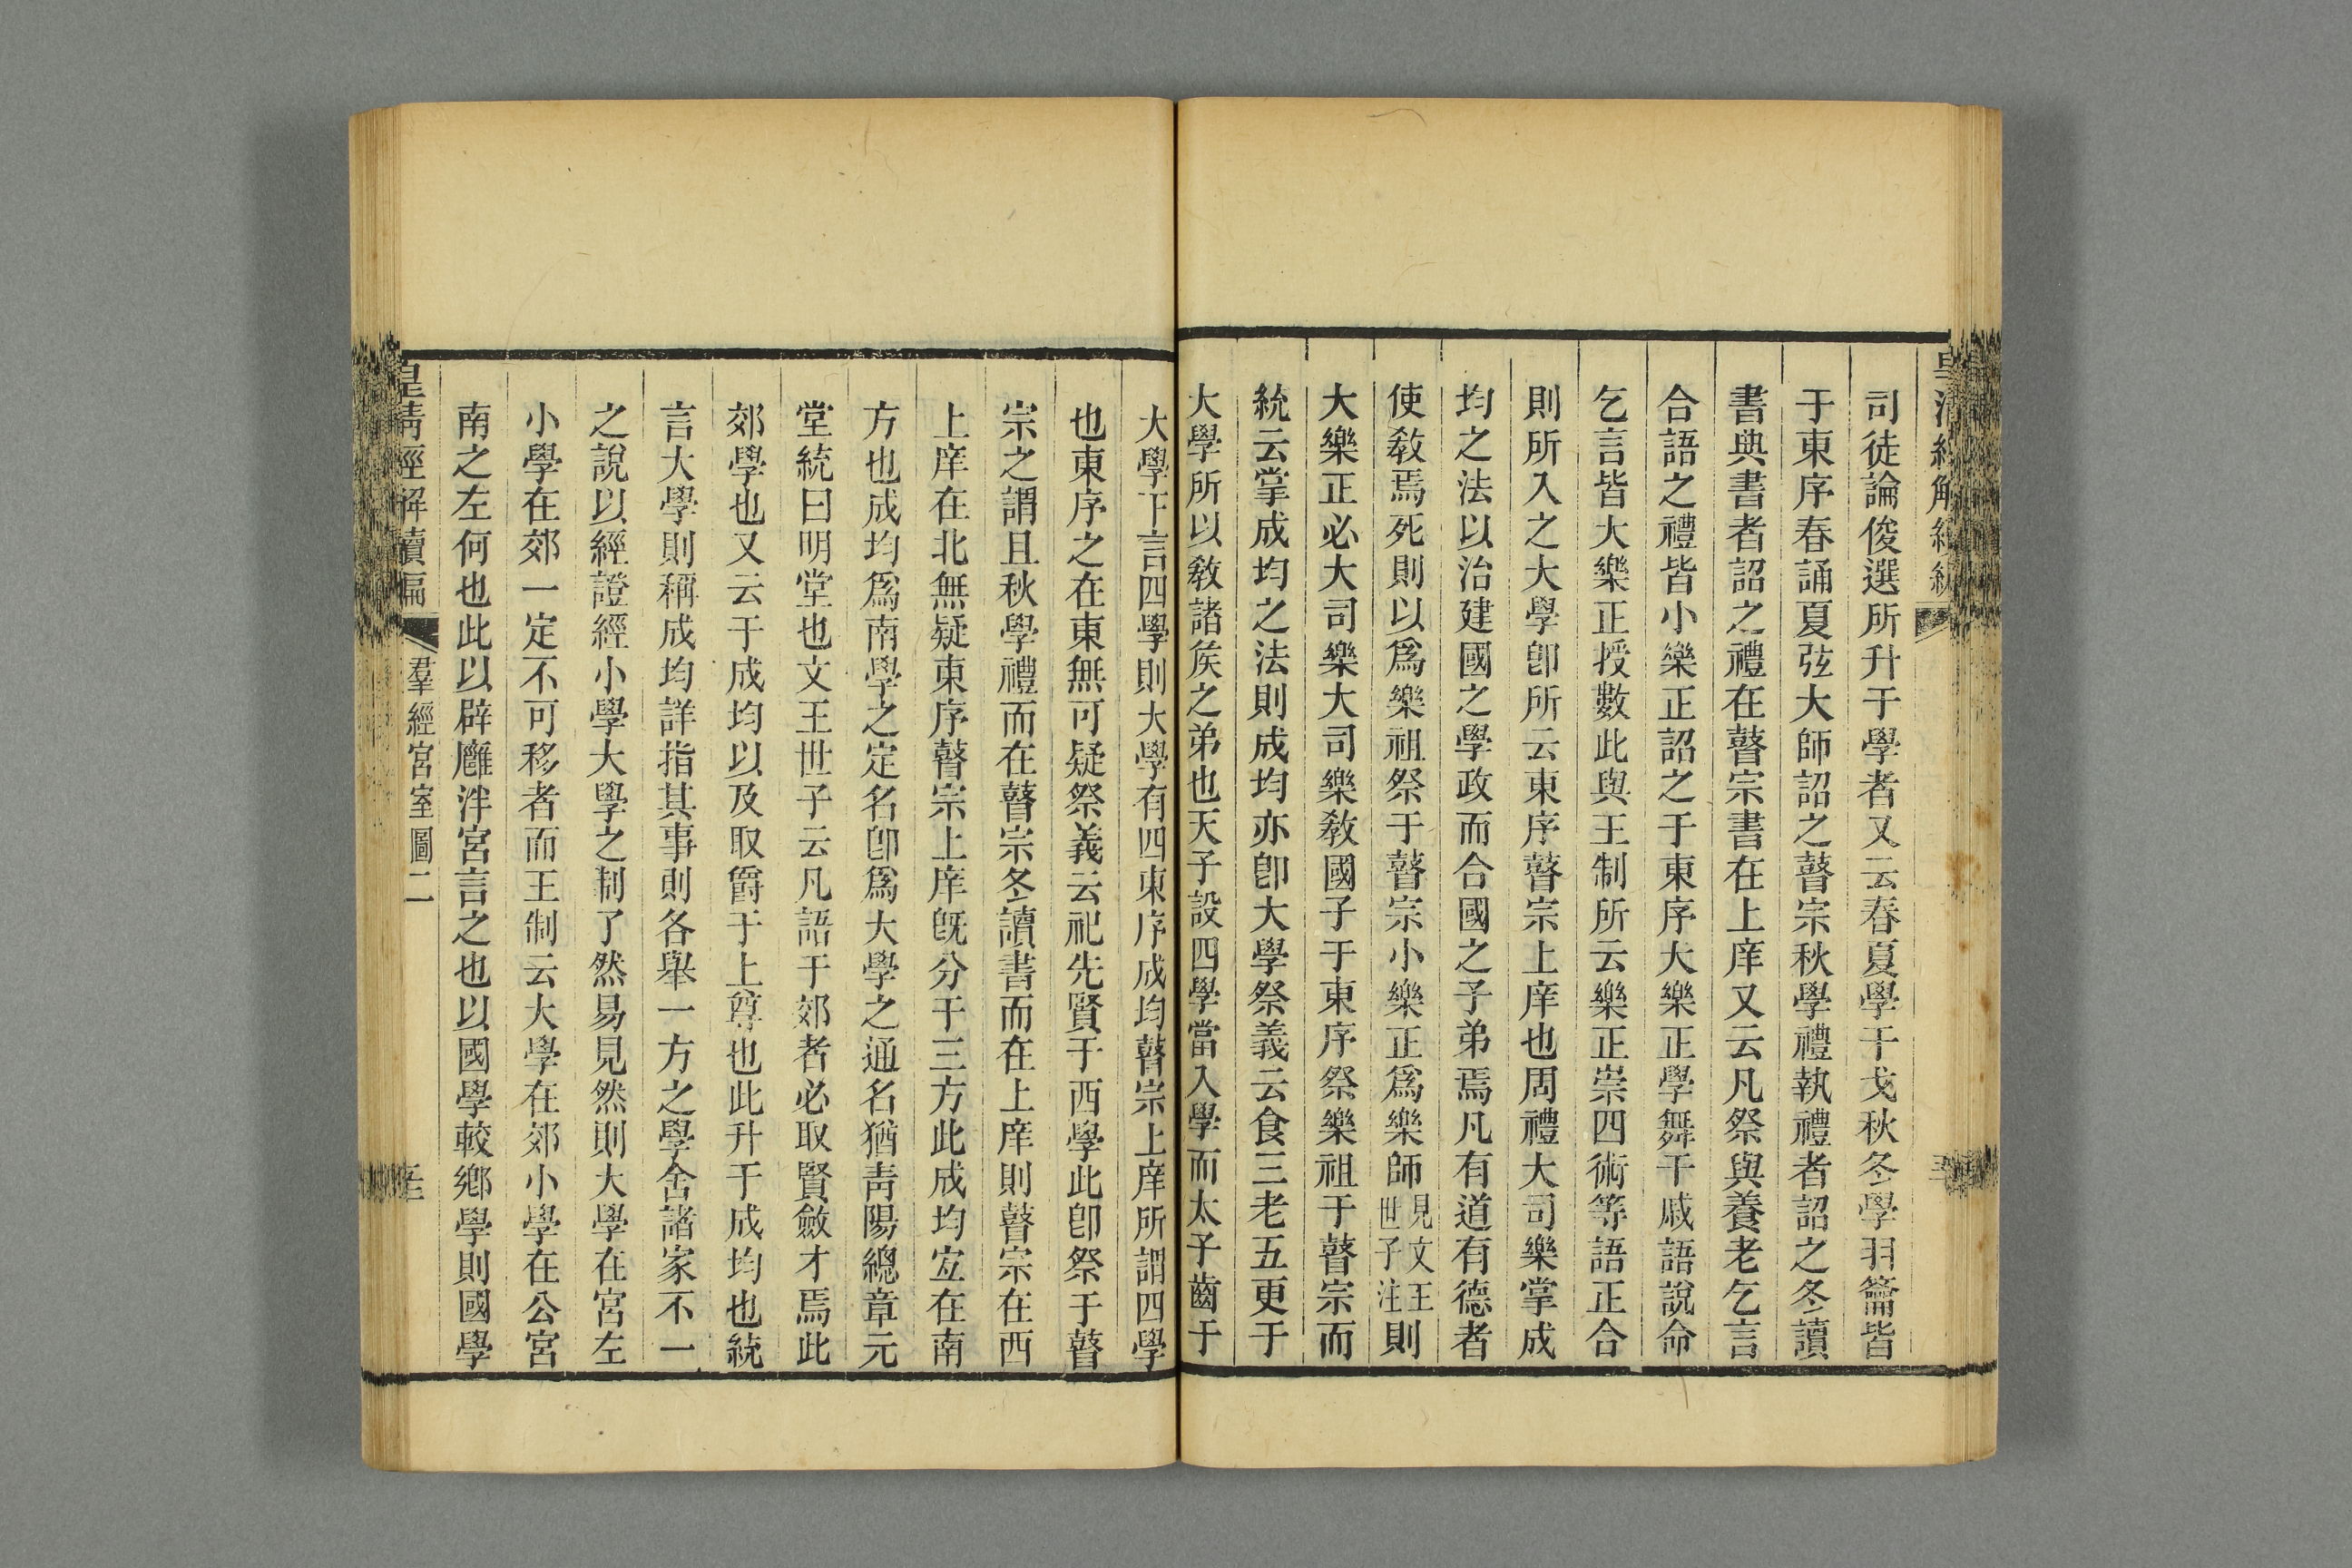 司徒論俊選所升于學者又云春夏學干戈秋冬學羽籥皆
于東序春誦夏弦大師詔之瞽宗秋學禮執禮者詔之冬讀
書典書者詔之禮在瞽宗書在上庠又云凡祭與養老乞言
合語之禮皆小樂正詔之于東序大樂正學舞干戚語說命
乞言皆大樂正授數此與王制所云樂正崇四術等語正合
則所入之大學卽所云東序瞽宗上庠也周禮大司樂掌成
均之法以治建國之學政而合國之子弟焉凡有道有德者
使敎焉死則以爲樂祖祭于瞽宗小樂正爲樂師見文王世子注則
大樂正必大司樂大司樂敎國子于東序祭樂祖于瞽宗而
統云掌成均之法則成均亦卽大學祭義云食三老五更于
大學所以敎諸矦之弟也天子設四學當入學而太子齒于
大學下言四學則大學有四東序成均瞽宗上庠所謂四學
也東序之在東無可疑祭義云祀先賢于西學此卽祭于瞽
宗之謂且秋學禮而在瞽宗冬讀書而在上庠則瞽宗在西
上庠在北無疑東序瞽宗上庠旣分于三方此成均宐在南
方也成均爲南學之定名卽爲大學之通名猶靑陽總章元
堂統曰明堂也文王世子云凡語于郊者必取賢斂才焉此
郊學也又云于成均以及取爵于上尊也此升于成均也統
言大學則稱成均詳指其事則各舉一方之學舍諸家不一
之說以經證經小學大學之制了然易見然則大學在宮左
小學在郊一定不可移者而王制云大學在郊小學在公宮
南之左何也此以辟廱泮宮言之也以國學較鄕學則國學
皇淸經解續編
羣經宮室圖二